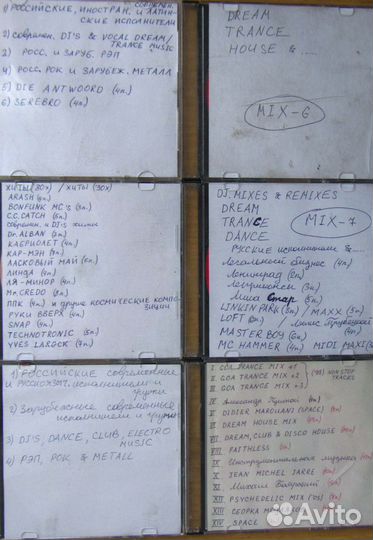 1) РОССИЙСКИЕ, ИНОСТРАН. И ЛАТИН-
СКИЕ ИСПОЛНИТЕЛИ
2) соврем. DJ'S & VOCAL DREAM/
TRANCE MUSIC
РОСС. И ЗАРУБ. РЭП
4) РОСС. РОК И ЗАРУБЕЖ. МЕТАЛЛ
5) DIE ANTWOORD (4п.)
6) SEREBRO (4п.)
DREAM
TRANCE
HOUSE & .....
MIX-6
ХИТЫ (80х) / ХИТЫ (90х)
ARASH (6п.)
BONFUNK MC'S (3п.)
C.C. CATCH (5п.)
соврем. и DJ'S
Dr. ALBAN (2п.)
КАБРИОЛЕТ (4п.)
КАР-МЭН (7п.)
ЛАСКОВЫЙ МАЙ (6п.)
ЛИНДА (4п.)
ЛЯ-МИНОР (4п.)
Mr. CREDO (5п.)
ППК (4п.) и другие КОСМИЧЕСКИЕ КОМПО-
ЗИЦИИ
РУКИ ВВЕРХ (4п.)
SNAP (4п.)
TECHNOTRONIC (3п.)
YVES LAROCK (7п.)
DJ. MIXES & REMIXES
DREAM
TRANCE
DANCE
MIX-7
РУССКИЕ исполнители &....
Легальный бизнес (4п.)
Ленинград (2п.)
Легурисион (3п.)
Миша Стар (5п.)
LINKIN PARK (3п.) / MAXX (3п.)
LOFT (2п.) /
MASTER BOY (6п.)
MC HAMMER (4п.) MIDI MAXI
1) РОССИЙСКИЕ современные
и исполнители и
группы
2) Зарубежные современные
исполнители и группы
3) DJ'S, DANCE, CLUB, ELECTRO
MUSIC
4) РЭП, РОК & МЕТАЛЛ
I GOA TRANCE MIX №1
II GOA TRANCE MIX №2
III GOA TRANCE MIX №3
('98) NON STOP
TRACKS
IV Александр
V DIDIER MAROUANI (SPACE)
VI DREAM HOUSE MIX
VII DREAM, CLUB & DISCO HOUSE
VIII FAITHLESS
IX Инструментальная музыка
X JEAN MICHEL JARRE
XI Михаил
XII PSYCHEDELIC MIX
XIII СБОРКА
XIV SPACE
Avito